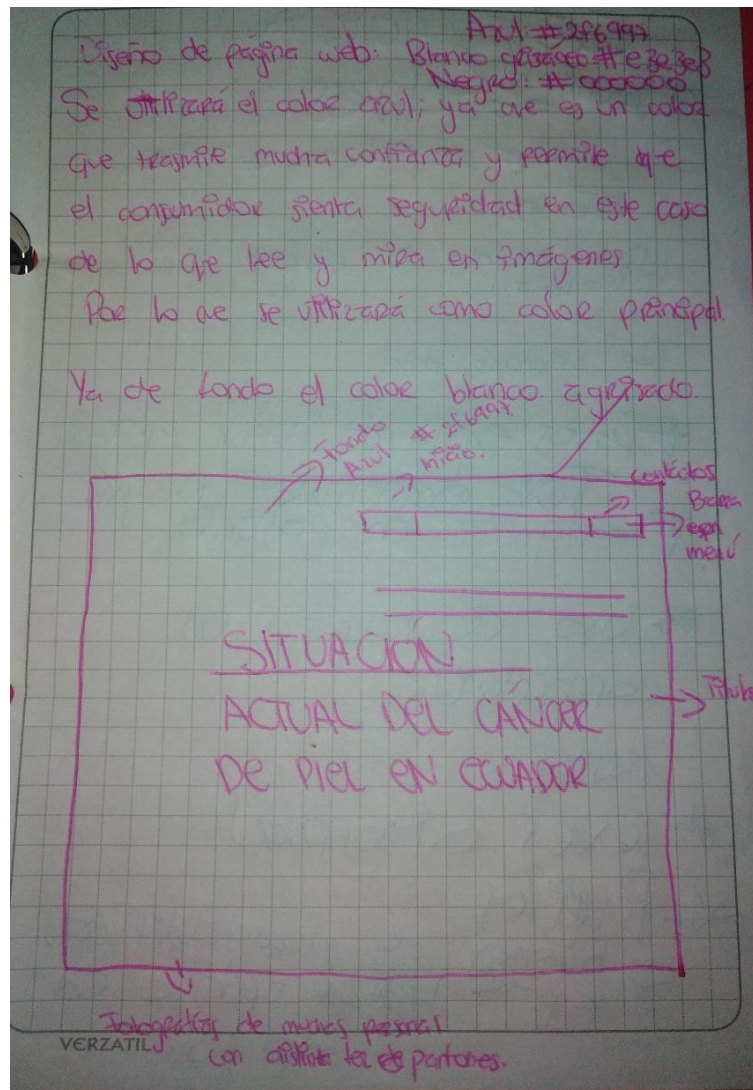 Azul: #2f6997
Diseño de página web: Blanco grisáceo #e3e3e3
Negro: #000000
Se utilizará el color azul; ya que es un color
que trasmite mucha confianza y permite que
el consumidor sienta seguridad en este caso
de lo que lee y mira en imágenes.
Por lo que se utilizará como color principal
Ya de fondo el color blanco agrisado.
Fondo
Azul #2f6997
inicio.
contáctos
Barra
menú
SITUACIÓN
ACTUAL DEL CÁNCER
DE PIEL EN ECUADOR
Título
Fotografías de muchas personas
con distinta tez de
VERZATIL